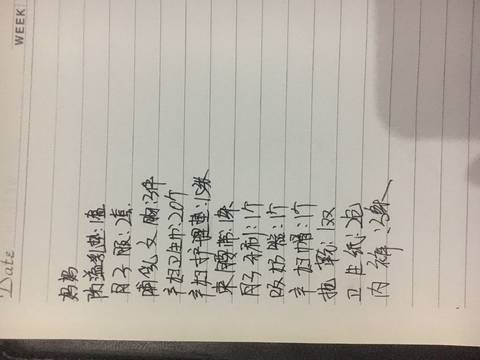 WEEK
Date
妈妈
防溢乳垫:1盒
月子服:2套
哺乳文胸:3件
产妇卫生巾:20个
产妇护理垫:
束腰带:1条
月子牙刷:1个
吸奶器:1个
产妇帽:1个
拖鞋:1双
卫生纸:2包
内裤: